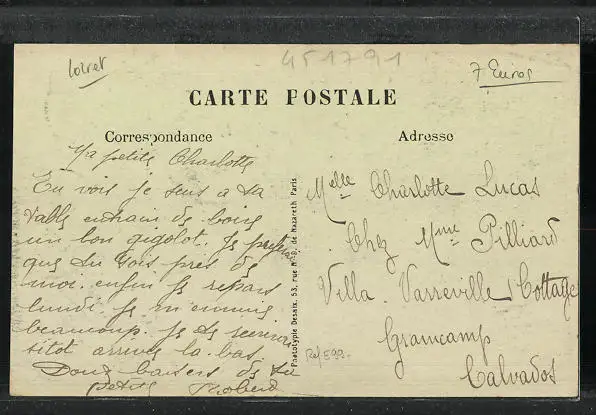 451791
Loiret
7 Euros
CARTE POSTALE
Correspondance
Adresse
Ma petite Charlotte
Tu vois je suis a ta
table entrain de boire
un bon gigolot. Je
que tu sois près de
moi. enfin je repars
lundi je m'ennuis
beaucoup. Je
sitot arrivée la bas.
Doux baisers de ta
petite Robert
Phototypie Desaix, 53, rue N.-D. de Nazareth Paris
Melle Charlotte Lucas
Chez Mme Pilliard
Villa. Varreville Cottage
Gramcamp
Calvados
Ref. E99